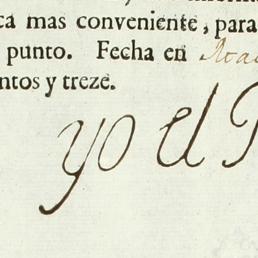 ca mas conveniente, para
punto. Fecha en
ntos y treze.
yo el R